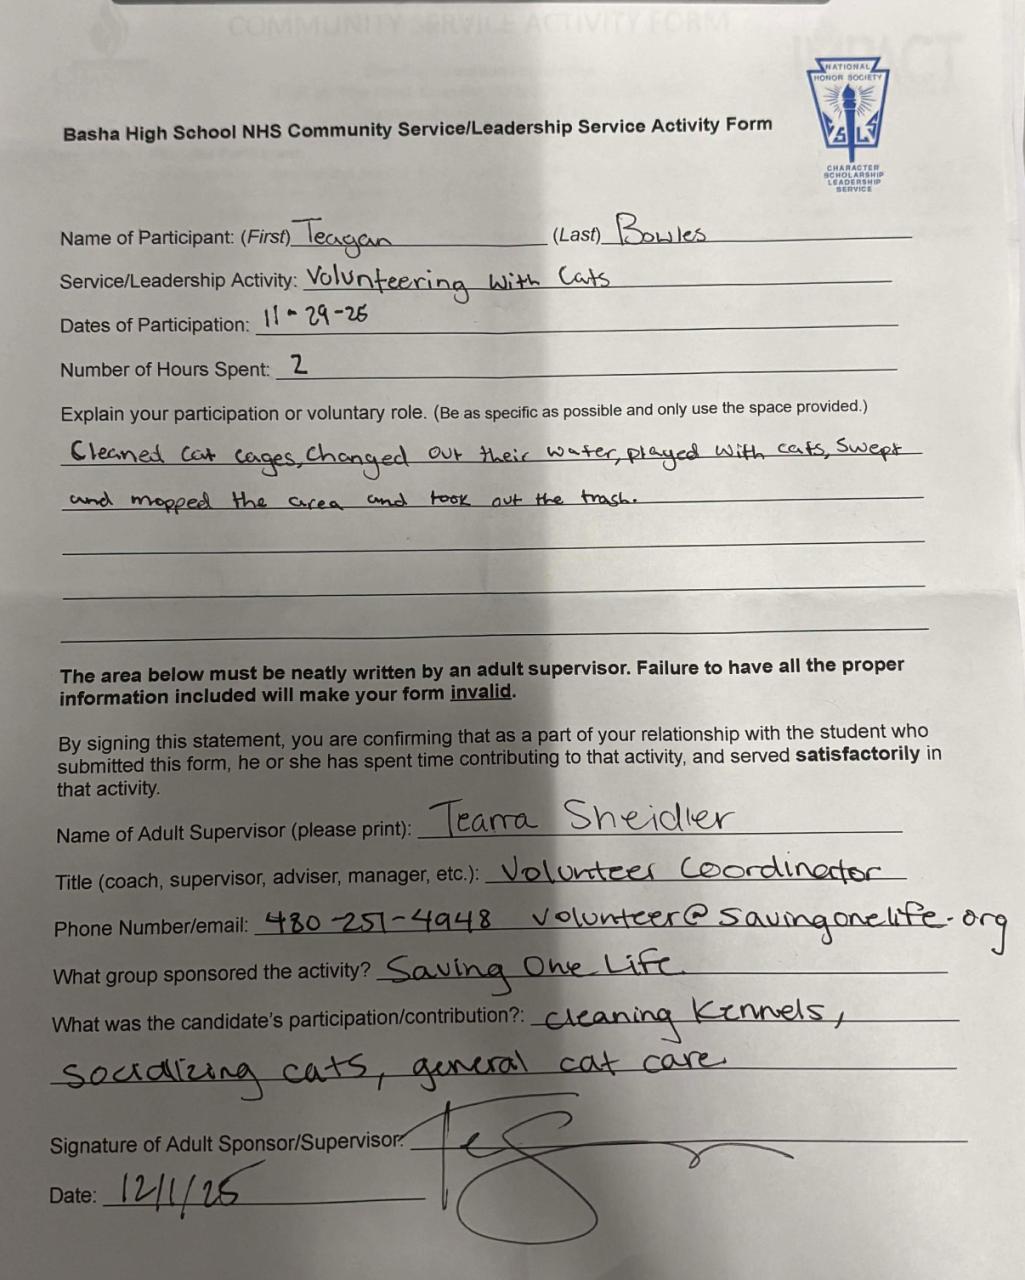 COMMUNITY SERVICE ACTIVITY FORM
NATIONAL
HONOR SOCIETY
S L S
CHARACTER
SCHOLARSHIP
LEADERSHIP
SERVICE
Basha High School NHS Community Service/Leadership Service Activity Form
Name of Participant: (First) Teagan (Last) Bowles
Service/Leadership Activity: Volunteering with Cats
Dates of Participation: 11-29-25
Number of Hours Spent: 2
Explain your participation or voluntary role. (Be as specific as possible and only use the space provided.)
Cleaned cat cages, changed out their water, played with cats, swept
and mopped the area and took out the trash.
The area below must be neatly written by an adult supervisor. Failure to have all the proper
information included will make your form invalid.
By signing this statement, you are confirming that as a part of your relationship with the student who
submitted this form, he or she has spent time contributing to that activity, and served satisfactorily in
that activity.
Name of Adult Supervisor (please print): Tearra Sheidler
Title (coach, supervisor, adviser, manager, etc.): Volunteer Coordinator
Phone Number/email: 480-251-4948 volunteer@savingonelife.org
What group sponsored the activity? Saving One Life
What was the candidate's participation/contribution?: cleaning Kennels,
socializing cats, general cat care
Signature of Adult Sponsor/Supervisor:
Date: 12/1/25